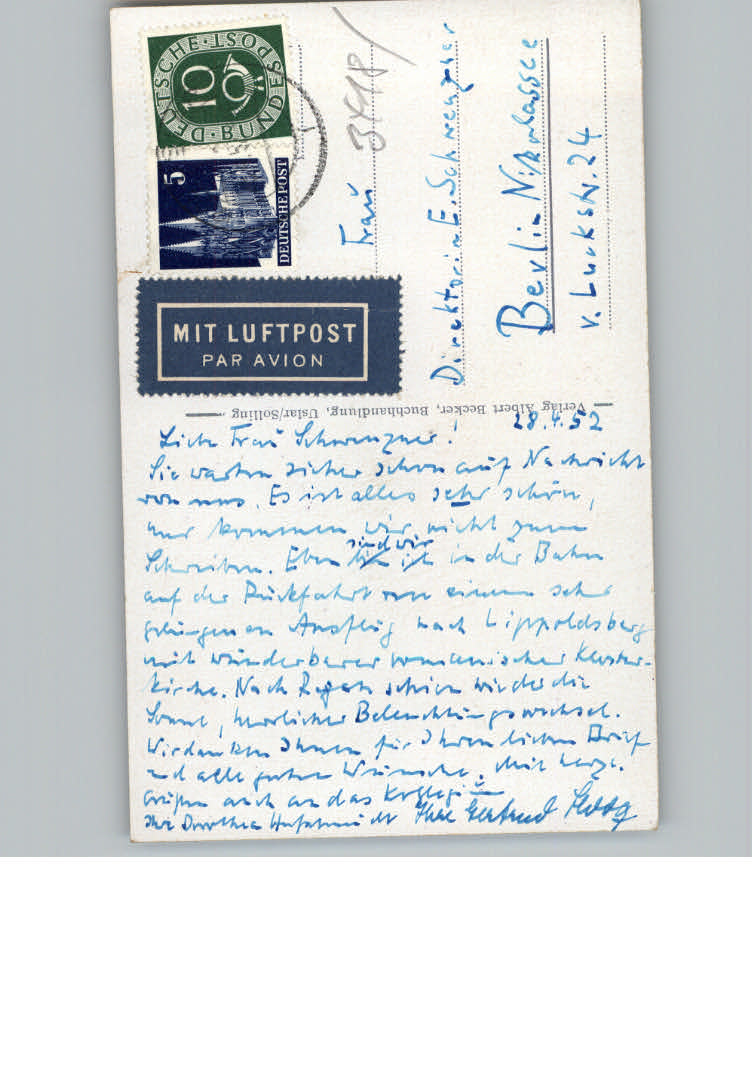 DEUTSCHE BUNDESPOST
10
5
DEUTSCHE POST
MIT LUFTPOST
PAR AVION
Frau
Direktorin E. Schwenzner
Berlin Nikolassee
v. Luckstr. 24
Verlag Albert Becker, Buchhandlung, Uslar/Solling
28.4.52
Liebe Frau Schwenzner!
Sie warten sicher schon auf Nachricht
von uns. Es ist alles sehr schön,
nur kommen wir nicht zum
Schreiben. Eben sind wir in der Bahn
auf der Rückfahrt von einem sehr
gelungenen Ausflug nach Lippoldsberg
mit wunderbarer romanischer Kloster-
kirche. Nach Regen schien wieder die
Sonne, herrlicher Beleuchtungswechsel.
Wir danken Ihnen für Ihren lieben Brief
und alle guten Wünsche. Mit herzl.
Grüßen auch an das Kollegium
Ihre Dorothea Ihre Gertrud